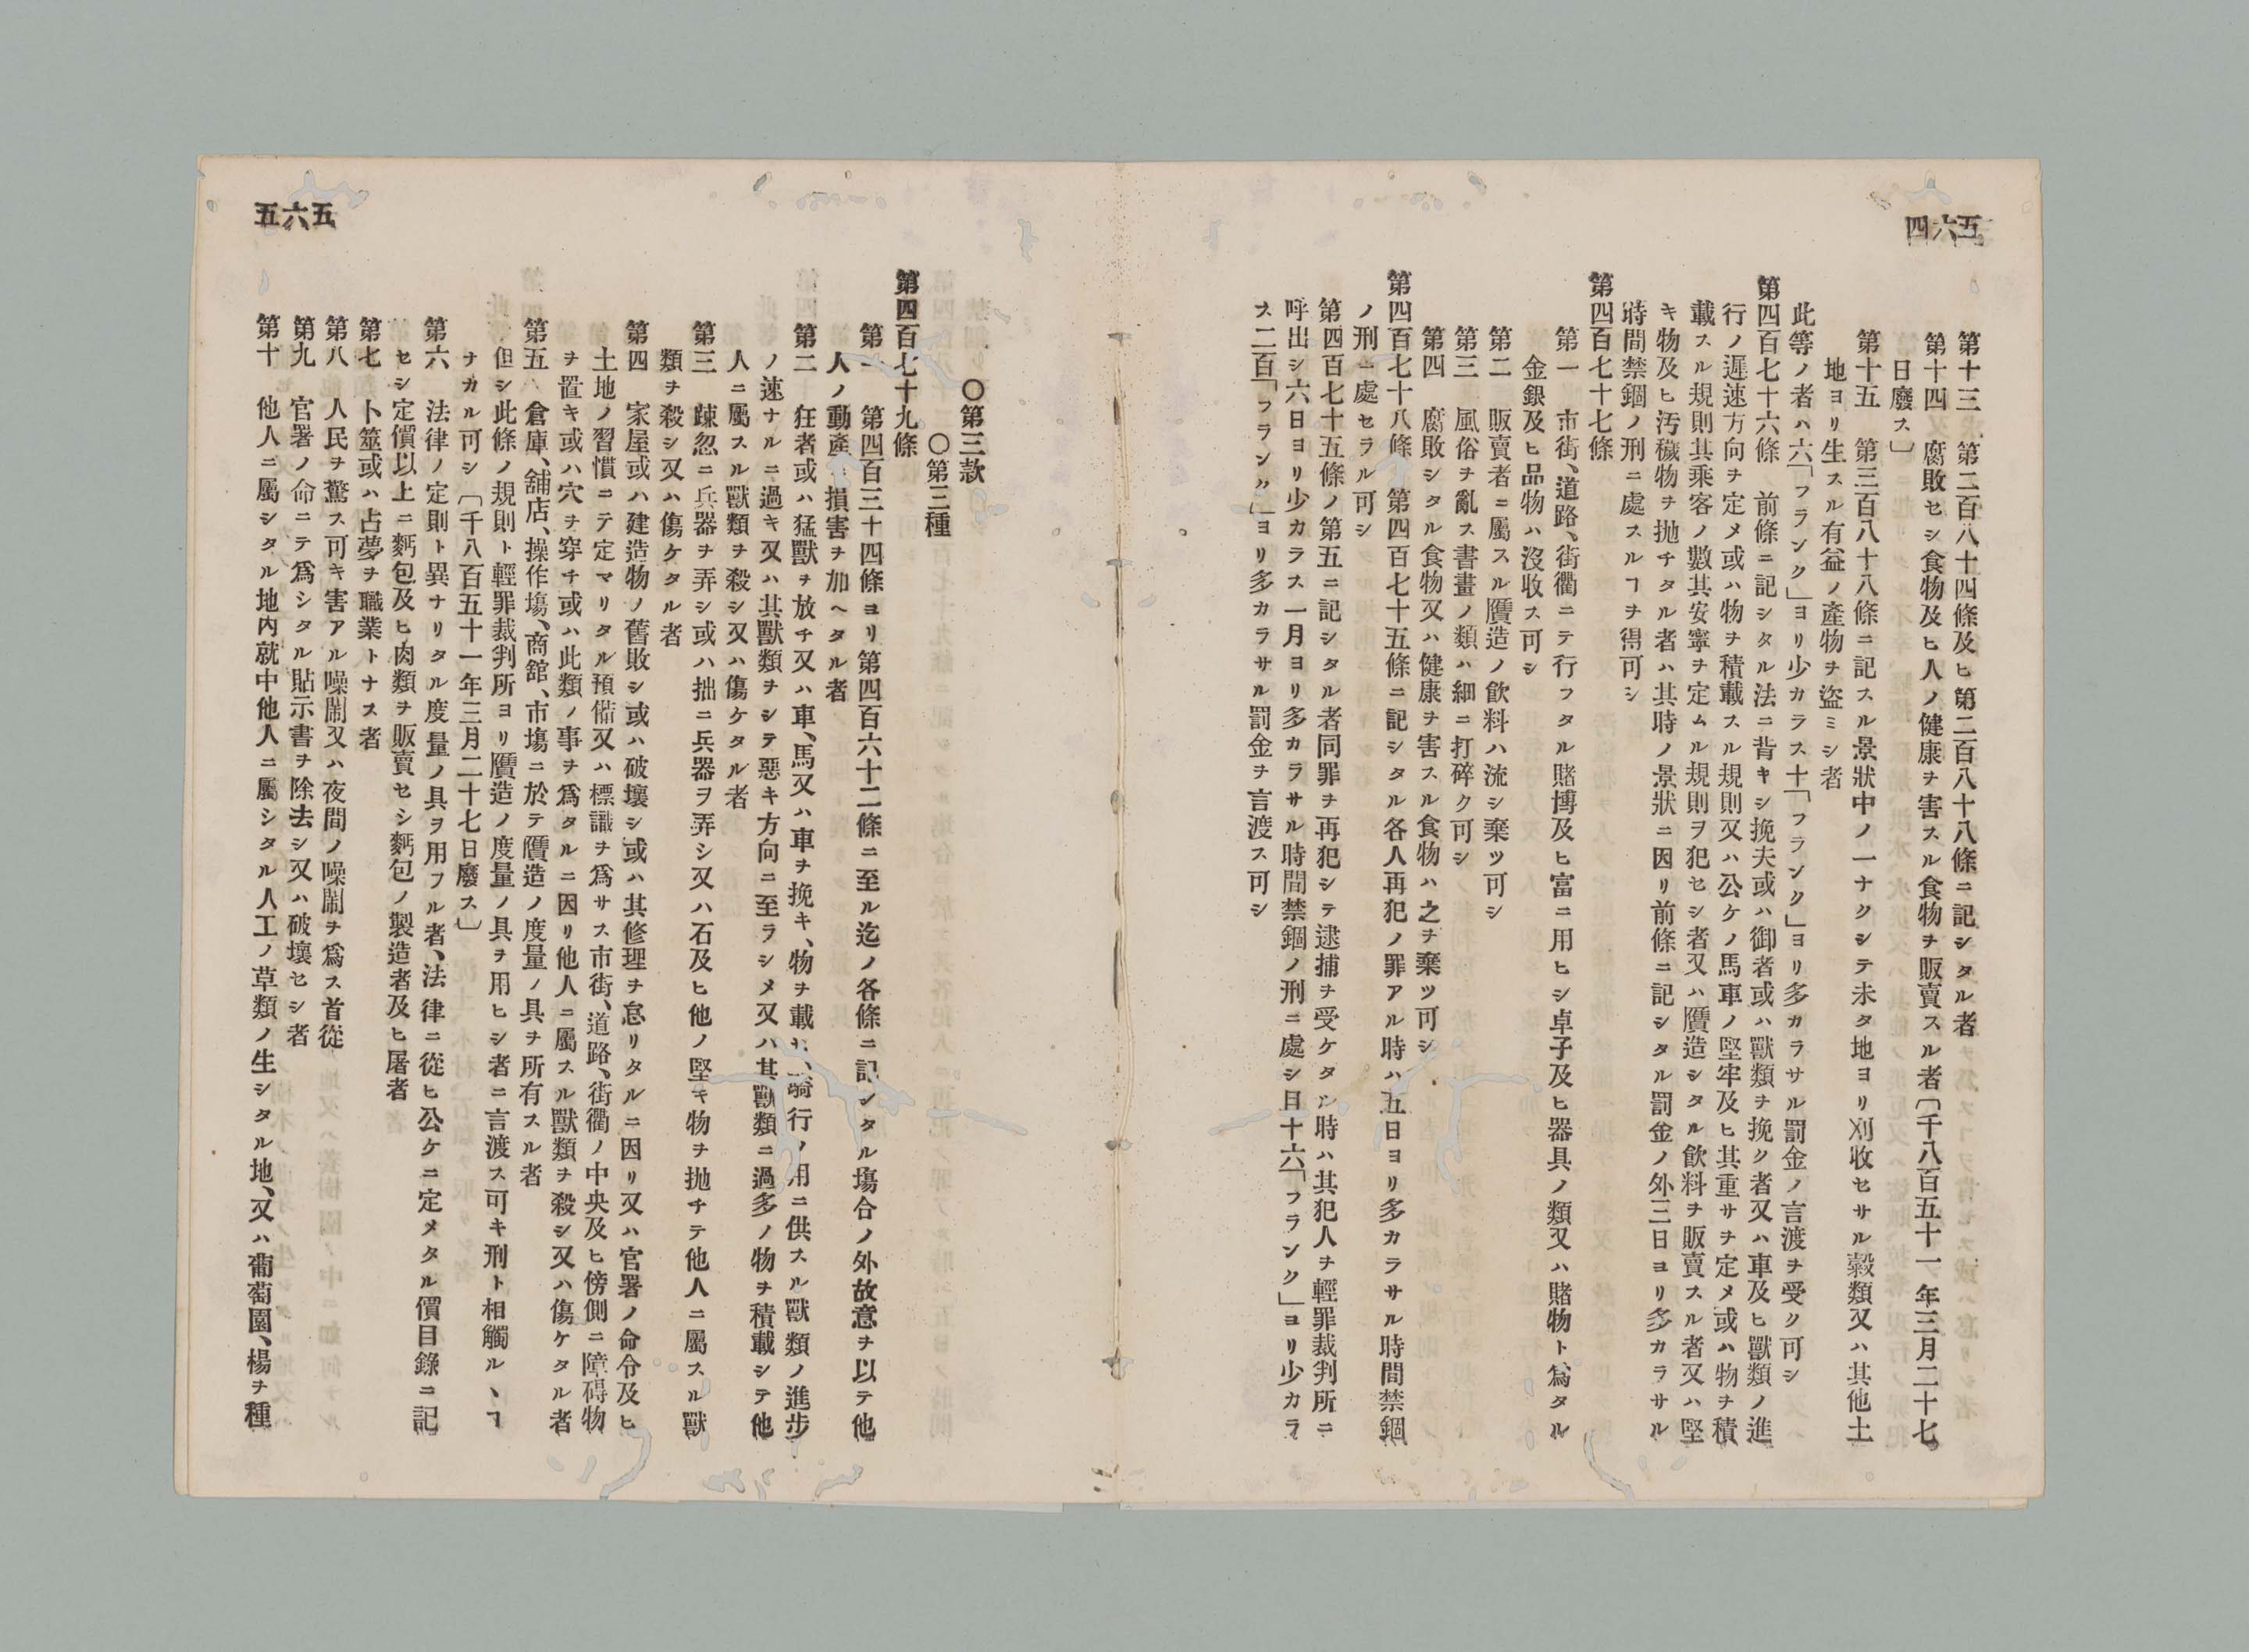 五六四
第十三　第二百八十四條及ヒ第二百八十八條ニ記シタル者
第十四　腐敗セシ食物及ヒ人ノ健康ヲ害スル食物ヲ販賣スル者〔千八百五十一年三月二十七
日廢ス〕
第十五　第三百八十八條ニ記スル景狀中ノ一ナクシテ未タ地ヨリ刈收セサル穀類又ハ其他土
地ヨリ生スル有益ノ產物ヲ盜ミシ者
此等ノ者ハ六「フランク」ヨリ少カラス十「フランク」ヨリ多カラサル罰金ノ言渡ヲ受ク可シ
第四百七十六條　前條ニ記シタル法ニ背キシ挽夫或ハ御者或ハ獸類ヲ挽ク者又ハ車及ヒ獸類ノ進
行ノ遲速方向ヲ定メ或ハ物ヲ積載スル規則又ハ公ケノ馬車ノ堅牢及ヒ其重サヲ定メ或ハ物ヲ積
載スル規則其乘客ノ數其安寧ヲ定ムル規則ヲ犯セシ者又ハ贋造シタル飮料ヲ販賣スル者又ハ堅
キ物及ヒ汚穢物ヲ抛チタル者ハ其時ノ景狀ニ因リ前條ニ記シタル罰金ノ外三日ヨリ多カラサル
時間禁錮ノ刑ニ處スルヿヲ得可シ
第四百七十七條
第一　市街、道路、街衢ニテ行フタル賭博及ヒ富ニ用ヒシ卓子及ヒ器具ノ類又ハ賭物ト爲タル
金銀及ヒ品物ハ沒收ス可シ
第二　販賣者ニ屬スル贋造ノ飮料ハ流シ棄ツ可シ
第三　風俗ヲ亂ス書畫ノ類ハ細ニ打碎ク可シ
第四　腐敗シタル食物又ハ健康ヲ害スル食物ハ之ヲ棄ツ可シ
第四百七十八條　第四百七十五條ニ記シタル各人再犯ノ罪アル時ハ五日ヨリ多カラサル時間禁錮
ノ刑ニ處セラル可シ
第四百七十五條ノ第五ニ記シタル者同罪ヲ再犯シテ逮捕ヲ受ケタル時ハ其犯人ヲ輕罪裁判所ニ
呼出シ六日ヨリ少カラス一月ヨリ多カラサル時間禁錮ノ刑ニ處シ且十六「フランク」ヨリ少カラ
ス二百「フランク」ヨリ多カラサル罰金ヲ言渡ス可シ
五六五
〇第三款
〇第三種
第四百七十九條
第一　第四百三十四條ヨリ第四百六十二條ニ至ル迄ノ各條ニ記シタル塲合ノ外故意ヲ以テ他
人ノ動產ニ損害ヲ加ヘタル者
第二　狂者或ハ猛獸ヲ放チ又ハ車、馬又ハ車ヲ挽キ、物ヲ載セ、騎行ノ用ニ供スル獸類ノ進步
ノ速ナルニ過キ又ハ其獸類ヲシテ惡キ方向ニ至ラシメ又ハ其獸類ニ過多ノ物ヲ積載シテ他
人ニ屬スル獸類ヲ殺シ又ハ傷ケタル者
第三　疎忽ニ兵器ヲ弄シ或ハ拙ニ兵器ヲ弄シ又ハ石及ヒ他ノ堅キ物ヲ抛チテ他人ニ屬スル獸
類ヲ殺シ又ハ傷ケタル者
第四　家屋或ハ建造物ノ舊敗シ或ハ破壞シ或ハ其修理ヲ怠リタルニ因リ又ハ官署ノ命令及ヒ
土地ノ習慣ニテ定マリタル預備又ハ標識ヲ爲サス市街、道路、街衢ノ中央及ヒ傍側ニ障碍物
ヲ置キ或ハ穴ヲ穿チ或ハ此類ノ事ヲ爲タルニ因リ他人ニ屬スル獸類ヲ殺シ又ハ傷ケタル者
第五　倉庫、舖店、操作塲、商舘、市塲ニ於テ贋造ノ度量ノ具ヲ所有スル者
但シ此條ノ規則ト輕罪裁判所ヨリ贋造ノ度量ノ具ヲ用ヒシ者ニ言渡ス可キ刑ト相觸ルヽヿ
ナカル可シ〔千八百五十一年三月二十七日廢ス〕
第六　法律ノ定則ト異ナリタル度量ノ具ヲ用フル者、法律ニ從ヒ公ケニ定メタル價目錄ニ記
セシ定價以上ニ麪包及ヒ肉類ヲ販賣セシ麪包ノ製造者及ヒ屠者
第七　卜筮或ハ占夢ヲ職業トナス者
第八　人民ヲ驚ス可キ害アル噪鬧又ハ夜間ノ噪鬧ヲ爲ス首從
第九　官署ノ命ニテ爲シタル貼示書ヲ除去シ又ハ破壞セシ者
第十　他人ニ屬シタル地內就中他人ニ屬シタル人工ノ草類ノ生シタル地、又ハ葡萄園、楊ヲ種